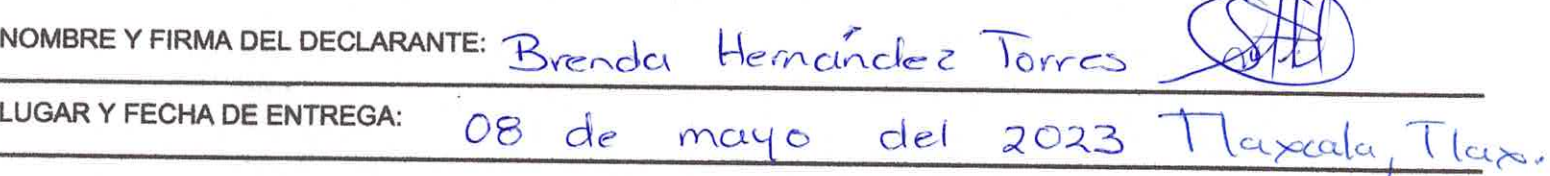 NOMBRE Y FIRMA DEL DECLARANTE: Brenda Hernández Torres
LUGAR Y FECHA DE ENTREGA: 08 de mayo del 2023 Tlaxcala, Tlax.